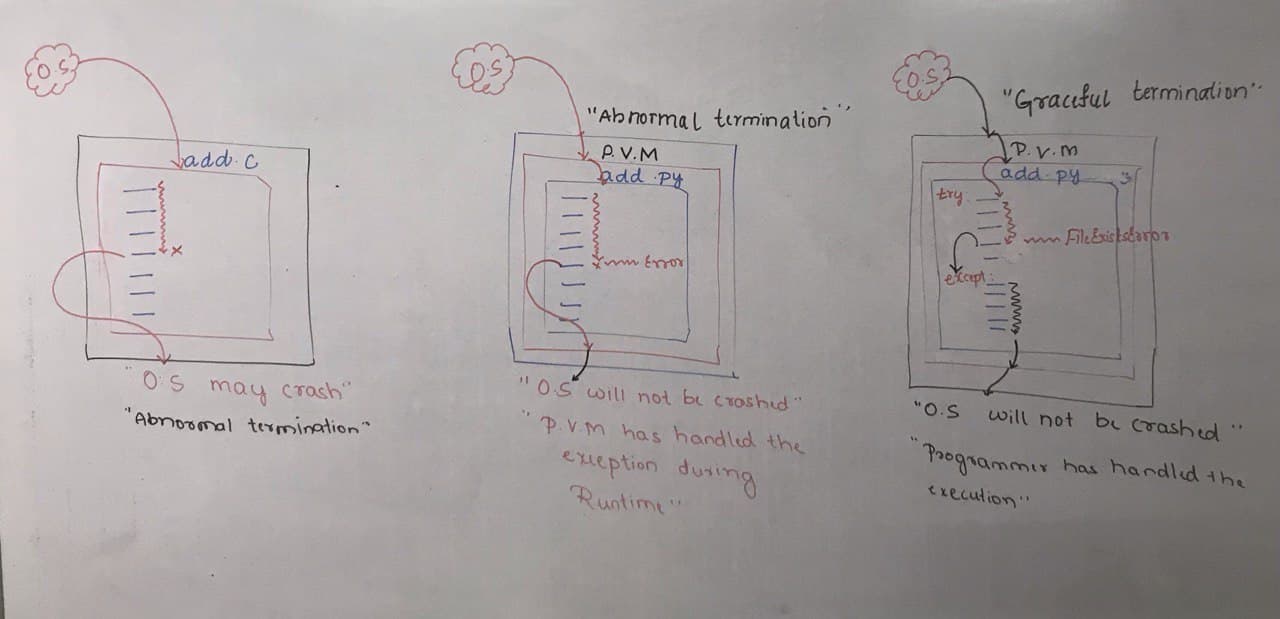 O.S
add.c
x
"O.S may crash"
"Abnormal termination"
O.S
"Abnormal termination"
P.V.M
add.py
x Error
"O.S will not be crashed"
"P.V.M has handled the
exception during
Runtime"
O.S
"Graceful termination"
P.V.M
add.py
try
FileExistsError
except:
"O.S will not be crashed"
"Programmer has handled the
execution"